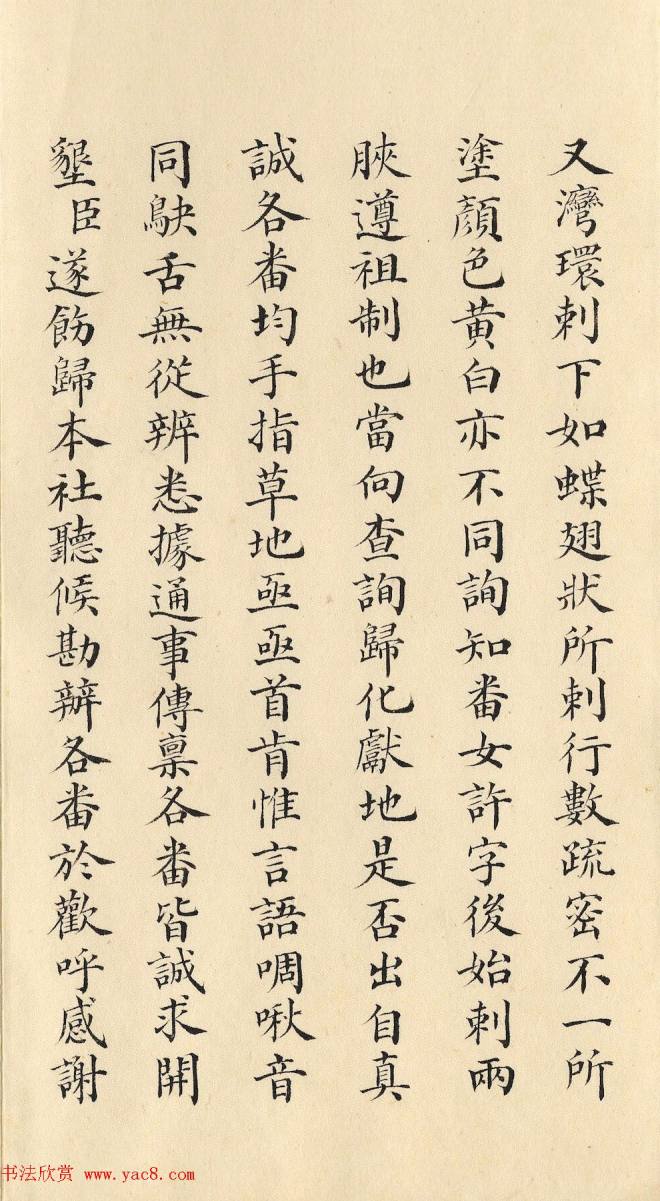 又灣環刺下如蝶翅狀所刺行數疏密不一所
塗顏色黃白亦不同詢知番女許字後始刺兩
脥遵祖制也當向查詢歸化獻地是否出自真
誠各番均手指草地亟亟首肯惟言語啁啾音
同鴃舌無從辨悉據通事傳稟各番皆誠求開
墾臣遂飭歸本社聽候勘辦各番於歡呼感謝
书法欣赏 www.yac8.com